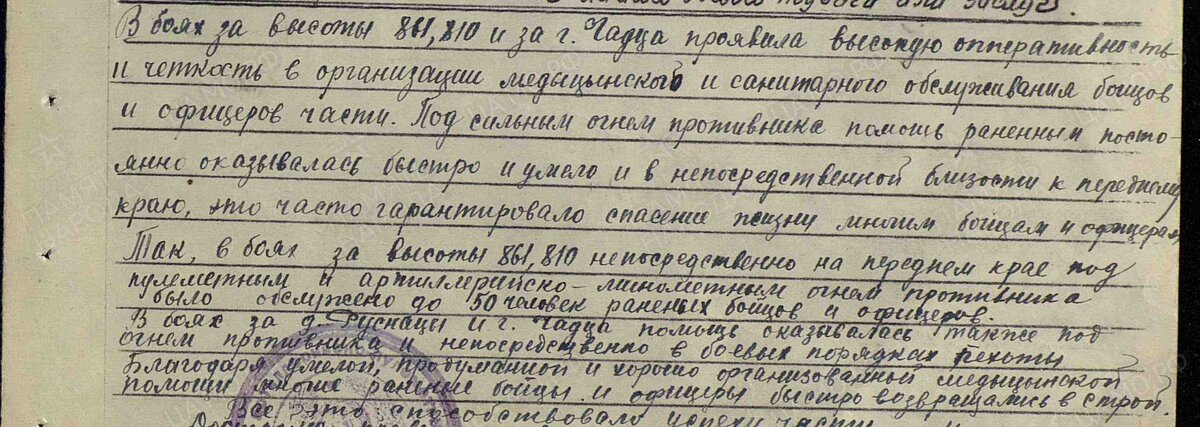 боевого подвига или заслуг.
В боях за высоты 861,810 и за г. Чадца проявила высокую опперативность
и четкость в организации медыцынского и санитарного обслуживания бойцов
и офицеров части. Под сильным огнем противника помощь раненным посто-
янно оказывалась быстро и умело и в непосредственной близости к переднему
краю, это часто гарантировало спасение жизни многим бойцам и офицерам,
Так, в боях за высоты 861,810 непосредственно на переднем крае под
пулеметным и артиллерийско-минометным огнем противника
было обслужено до 50 человек раненых бойцов и офицеров.
В боях за д. Руснацы и г. Чадца помощь оказывалась также под
огнем противника и непосредственно в боевых порядках пехоты
Благодаря умелой, продуманной и хорошо организованной медыцынской
помощи многие раненые бойцы и офицеры быстро возвращались в строй.
Все это способствовало успеху части